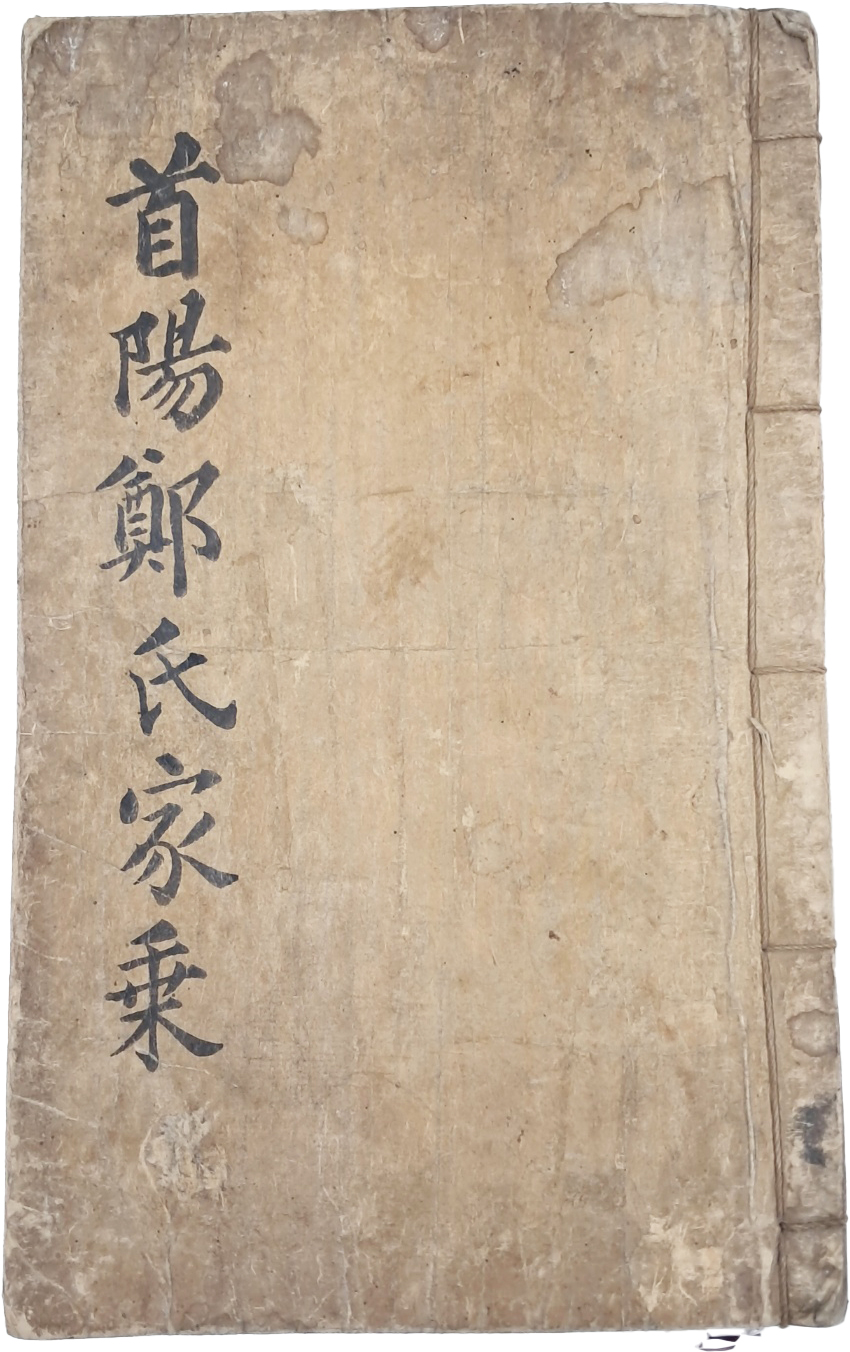 首陽鄭氏家乗